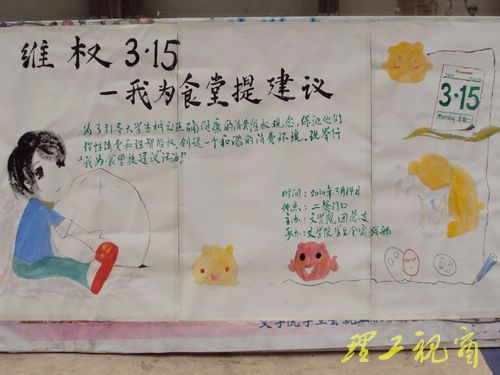 维权 3·15
—我为食堂提建议
为了引导大学生树立正确健康的消费维权观念，保证他们
理性消费和识智维权，创造一个和谐的消费环境。现举行
"我为食堂提建议活动"
时间：2010年3月14日
地点：二餐门口
主办：文学院团总支
承办：文学院学生会实践部
3·15
Monday 星期一
理工视窗